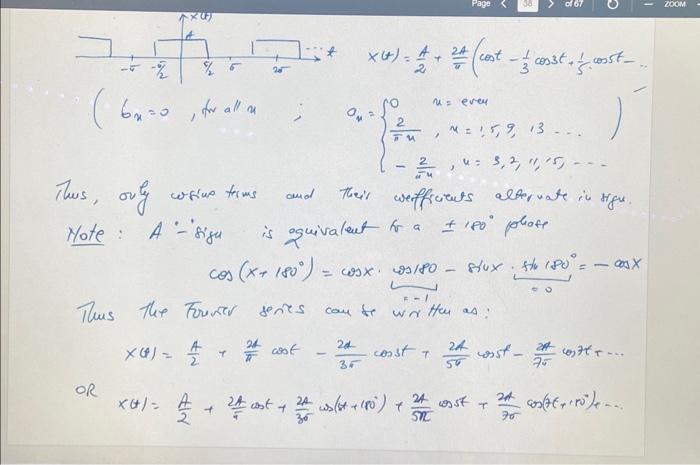 Page < 38 > of 67 ZOOM
x(t)
A
-π -π/2 π/2 π 2π ... t
x(t) = A/2 + 2A/π (cost - 1/3 cos3t + 1/5 cos5t - ...
( bn = 0 , for all n ; an = { 0 n = even
2/πn , n = 1, 5, 9, 13 ... )
- 2/πn , n = 3, 7, 11, 15, ...
Thus, only cosine terms and their coefficients alternate in sign.
Note : A '-' sign is equivalent to a ± 180° phase
cos (x + 180°) = cosx . cos180 - sinx . sin 180° = - cosx
= -1 = 0
Thus the Fourier series can be written as :
x(t) = A/2 + 2A/π cost - 2A/3π cos3t + 2A/5π cos5t - 2A/7π cos7t + ...
OR x(t) = A/2 + 2A/π cost + 2A/3π cos(3t + 180°) + 2A/5π cos5t + 2A/7π cos(7t + 180°) + ...